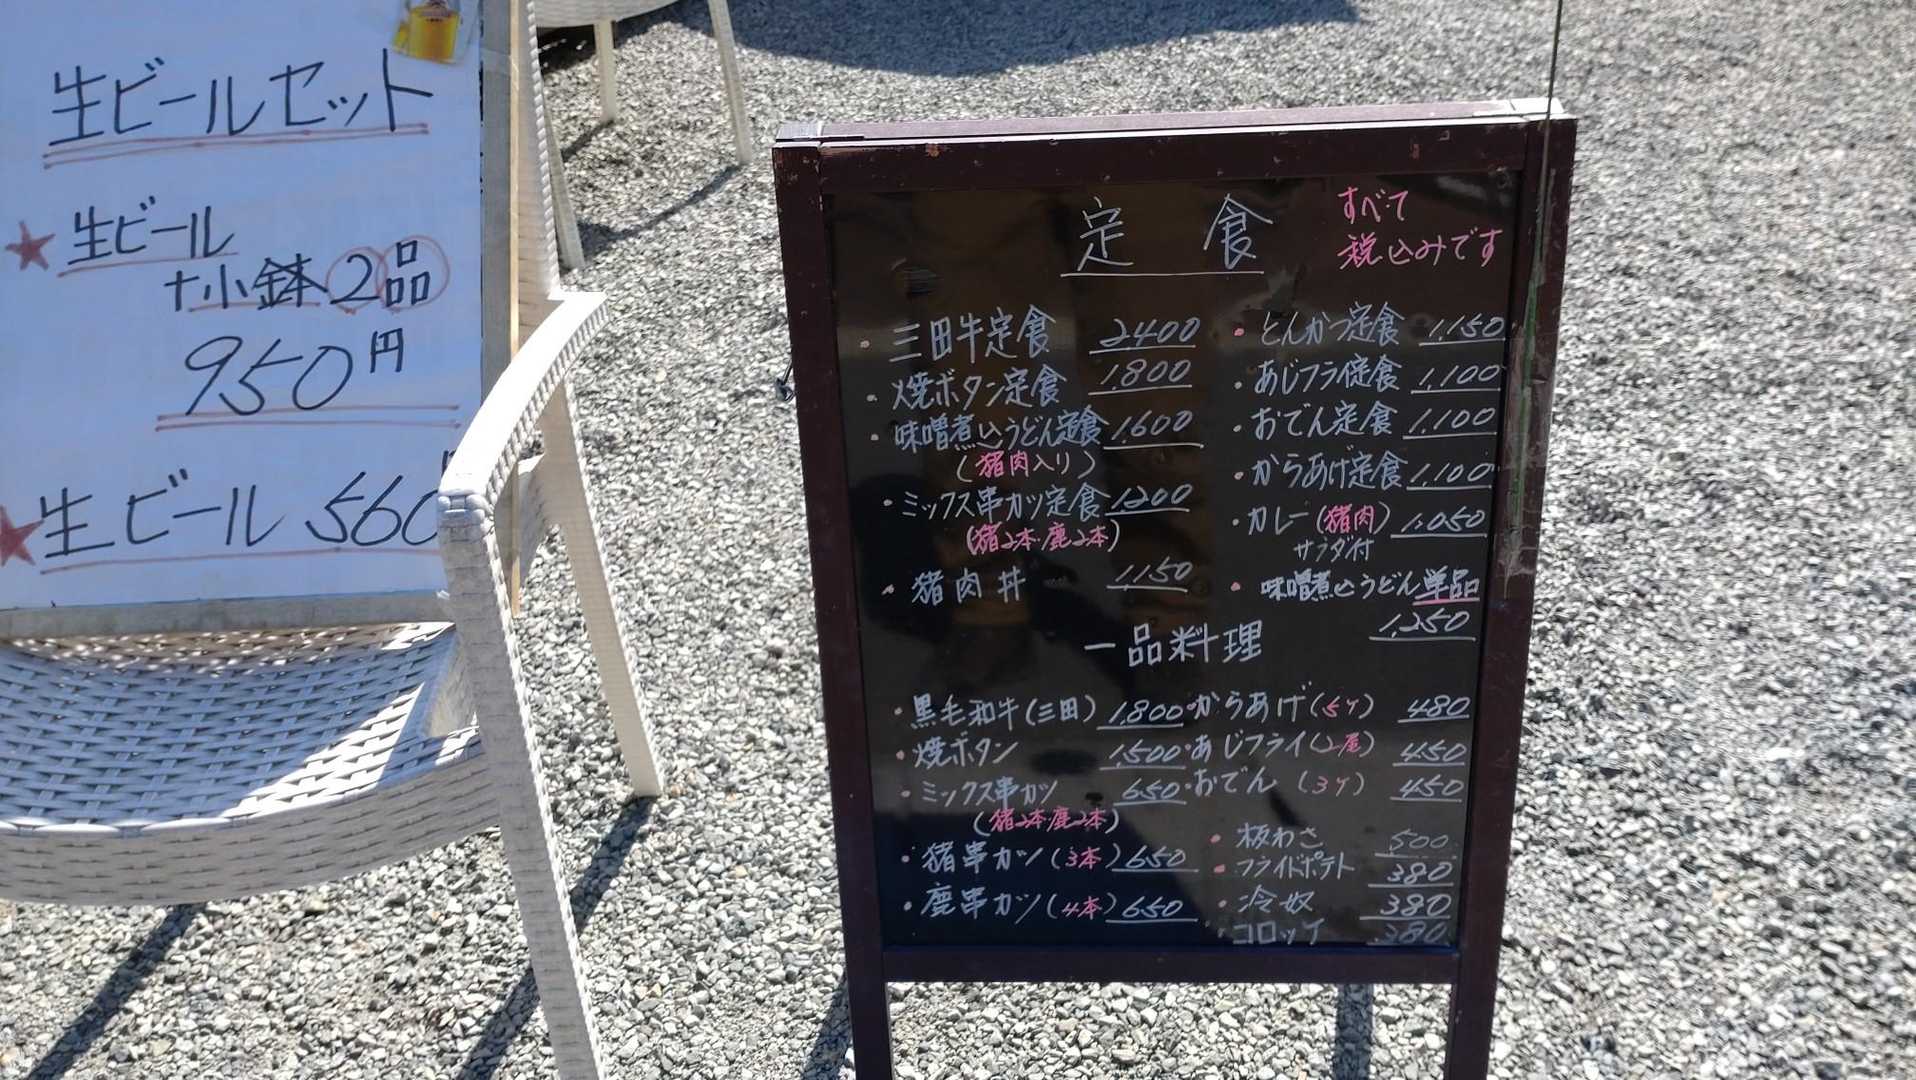 生ビールセット
★生ビール
+小鉢2品
950円
★生ビール 560
定食
すべて
税込みです
・三田牛定食 2400
・焼ボタン定食 1,800
・味噌煮込うどん定食 1,600
(猪肉入り)
・ミックス串カツ定食 1,200
(猪2本・鹿2本)
・猪肉丼 1,150
・とんかつ定食 1,150
・あじフライ定食 1,100
・おでん定食 1,100
・からあげ定食 1,100
・カレー(猪肉) 1,050
サラダ付
・味噌煮込うどん単品
1,250
一品料理
・黒毛和牛(三田) 1,800
・焼ボタン 1,500
・ミックス串カツ 650
(猪2本・鹿2本)
・猪串カツ(3本) 650
・鹿串カツ(4本) 650
・からあげ(5ケ) 480
・あじフライ(2尾) 450
・おでん(3ケ) 450
・板わさ 500
・フライドポテト 380
・冷奴 380
・コロッケ 380